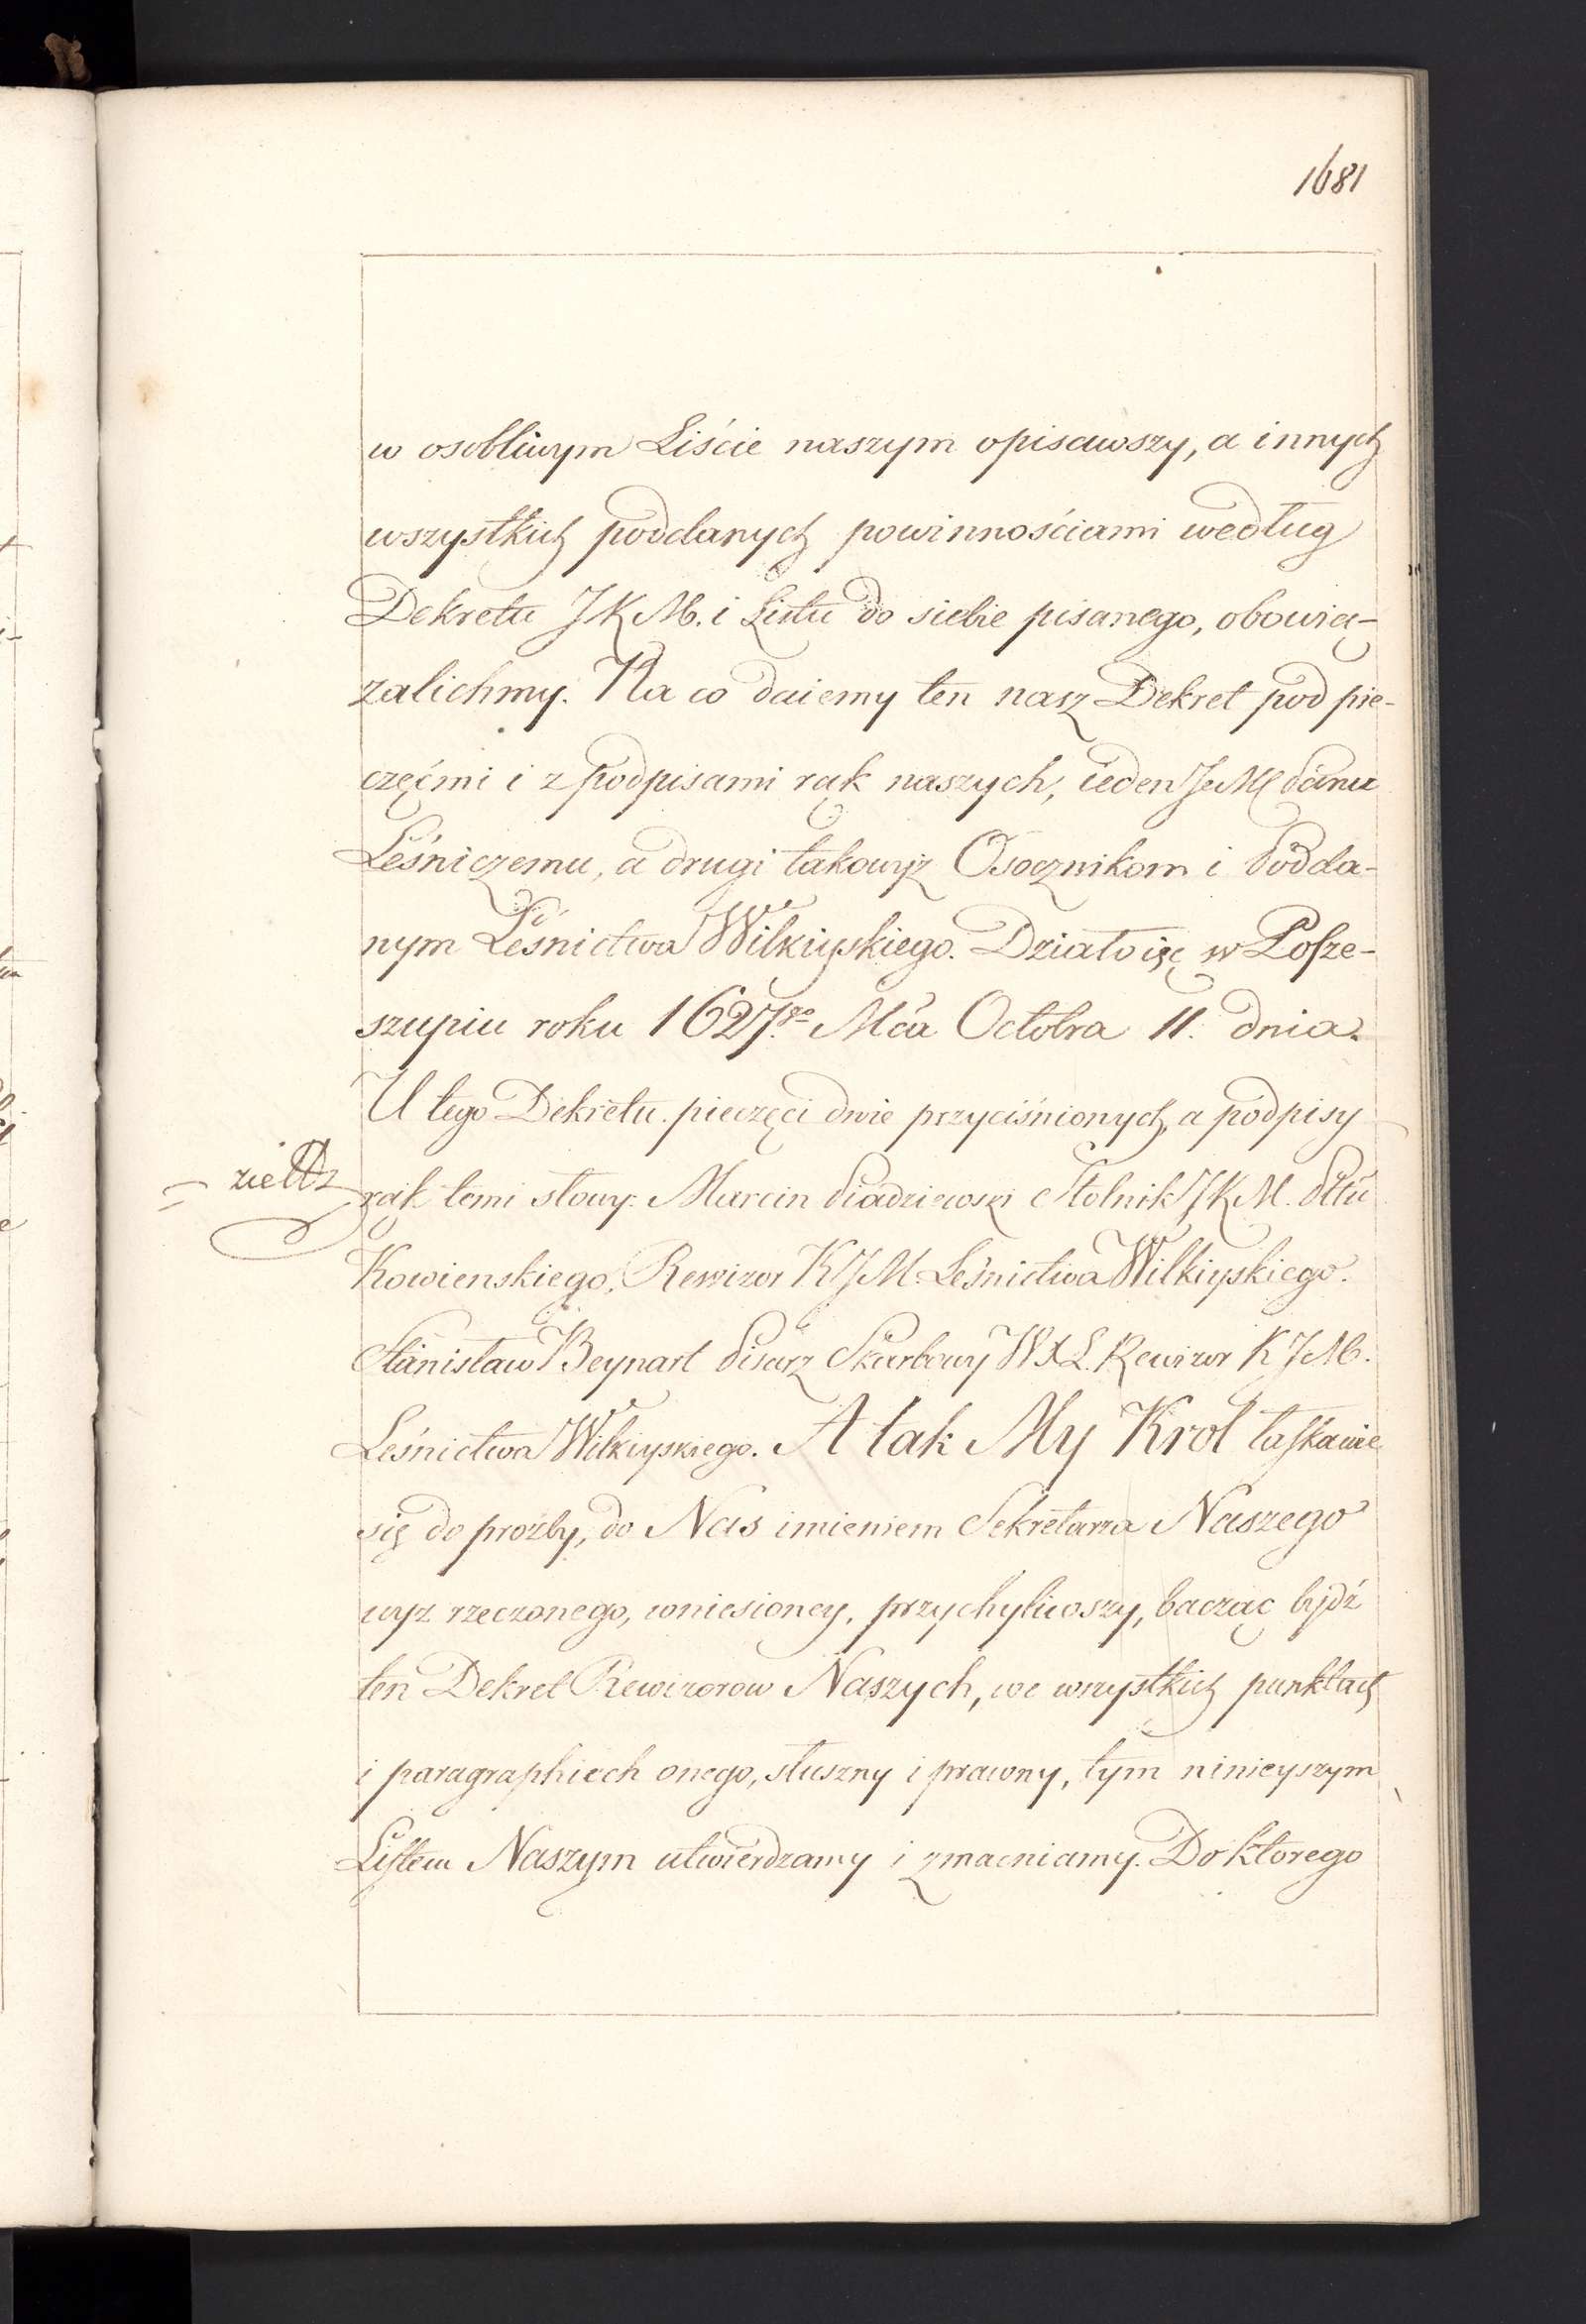 1681
w osobliwym Liście naszym opisawszy, a innych
wszystkich poddanych powinnościami według
Dekretu JKM. i Listu do siebie pisanego, obowią-
zalichmy. Na co daiemy ten nasz Dekret pod pie-
częćmi i z podpisami rąk naszych, ieden Je Panu
Leśniczemu, a drugi takowyż Osocznikom i Podda-
nym Leśnictwa Wilkiyskiego. Działo się w Posze-
szupiu roku 1627.go Mca Octobra 11. dnia.
U tego Dekretu pieczęci dwie przyciśnionych, a podpisy
rąk temi słowy: Marcin Stolnik JKM. Pttu
Kowienskiego, Rewizor KJM. Leśnictwa Wilkiyskiego.
Stanisław Beynart Pisarz Skarbowy WXL. Rewizor KJM.
Leśnictwa Wilkiyskiego. A tak My Krol łaskawie
się do prozby, do Nas imieniem Sekretarza Naszego
wyż rzeczonego, wniesioney, przychyliwszy, bacząc bydź
ten Dekret Rewizorow Naszych, we wszystkich punktach
i paragraphiech onego, słuszny i prawny, tym ninieyszym
Listem Naszym utwierdzamy i zmacniamy. Do ktorego